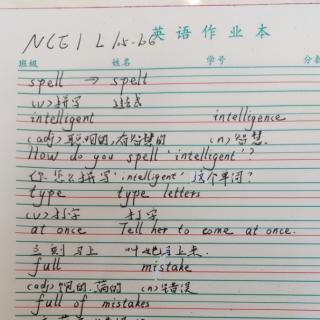 NCE1 L105-106
英语作业本
班级 姓名 学号 分数
spell → spelt
(v) 拼写 过去式
intelligent intelligence
(adj) 聪明的,有智慧的 (n) 智慧.
How do you spell 'intelligent'?
你怎么拼写'intelligent'这个单词?
type type letters
(v) 打字 打字
at once Tell her to come at once.
立刻 马上 叫她马上来.
full mistake
(adj) 饱的.满的 (n) 错误
full of mistakes